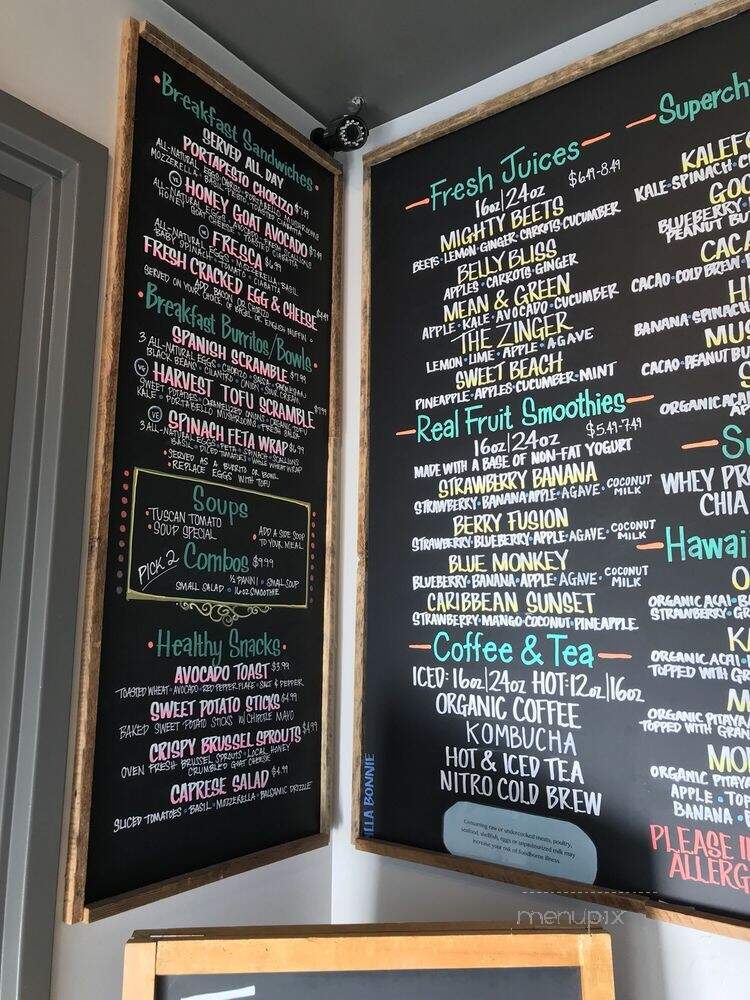 Breakfast Sandwiches
SERVED ALL DAY
PORTAPESTO CHORIZO $7.49
ALL-NATURAL EGGS • CHORIZO • PORTABELLO MUSHROOMS
MOZZARELLA • BASIL PESTO • TOASTED CIABATTA
VG HONEY GOAT AVOCADO $7.49
ALL-NATURAL EGGS
HONEY GOAT CHEESE
VG FRESCA $6.99
ALL-NATURAL EGGS • MOZZERELLA • BASIL
BABY SPINACH • TOMATO • CIABATTA
FRESH CRACKED EGG & CHEESE
ADD BACON OR CHORIZO
SERVED ON YOUR CHOICE OF BAGEL OR ENGLISH MUFFIN
Breakfast Burritos/Bowls
SPANISH SCRAMBLE $7.99
3 ALL-NATURAL EGGS • CHORIZO • SALSA
BLACK BEANS • CILANTRO • ONION • SOUR CREAM
VE HARVEST TOFU SCRAMBLE $7.99
SWEET POTATOES • CARAMELIZED ONIONS • ORGANIC TOFU
KALE • PORTABELLO MUSHROOMS • FRESH SALSA
VG SPINACH FETA WRAP $6.99
3 ALL-NATURAL EGGS • FETA • SPINACH • SCALLIONS
BASIL • DICED TOMATOES • WHOLE WHEAT WRAP
• SERVED AS A BURRITO OR BOWL
• REPLACE EGGS WITH TOFU
Soups
• TUSCAN TOMATO
• SOUP SPECIAL
• ADD A SIDE SOUP
TO YOUR MEAL
PICK 2 Combos $9.99
½ PANINI • SMALL SOUP
SMALL SALAD • 16oz SMOOTHIE
• Healthy Snacks •
AVOCADO TOAST $3.99
TOASTED WHEAT • AVOCADO • RED PEPPER FLAKE • SALT & PEPPER
SWEET POTATO STICKS $4.99
BAKED SWEET POTATO STICKS W/ CHIPOTLE MAYO
CRISPY BRUSSEL SPROUTS $4.99
OVEN FRESH BRUSSEL SPROUTS • LOCAL HONEY
CRUMBLED GOAT CHEESE
CAPRESE SALAD $4.99
SLICED TOMATOES • BASIL • MOZZERELLA • BALSAMIC DRIZZLE
Fresh Juices
16oz|24oz $6.49-8.49
MIGHTY BEETS
BEETS • LEMON • GINGER • CARROTS • CUCUMBER
BELLY BLISS
APPLES • CARROTS • GINGER
MEAN & GREEN
APPLE • KALE • AVOCADO • CUCUMBER
THE ZINGER
LEMON • LIME • APPLE • AGAVE
SWEET BEACH
PINEAPPLE • APPLES • CUCUMBER • MINT
Real Fruit Smoothies
16oz|24oz $5.49-7.49
MADE WITH A BASE OF NON-FAT YOGURT
STRAWBERRY BANANA
STRAWBERRY • BANANA • APPLE • AGAVE • COCONUT MILK
BERRY FUSION
STRAWBERRY • BLUEBERRY • APPLE • AGAVE • COCONUT MILK
BLUE MONKEY
BLUEBERRY • BANANA • APPLE • AGAVE • COCONUT MILK
CARIBBEAN SUNSET
STRAWBERRY • MANGO • COCONUT • PINEAPPLE
Coffee & Tea
ICED: 16oz|24oz HOT: 12oz|16oz
ORGANIC COFFEE
KOMBUCHA
HOT & ICED TEA
NITRO COLD BREW
LLA BONNIE
Consuming raw or undercooked meats, poultry,
seafood, shellfish, eggs or unpasteurized milk may
increase your risk of foodborne illness.
Superch
KALEFO
KALE • SPINACH • C
GOO
BLUEBERRY •
PEANUT BU
CACA
CACAO • COLD BREW •
H
BANANA • SPINACH
MUS
CACAO • PEANUT BU
S
ORGANIC ACAI
AP
Su
WHEY PRO
CHIA
Hawai
O
ORGANIC ACAI • BA
STRAWBERRY • GR
KA
ORGANIC ACAI • P
TOPPED WITH GR
M
ORGANIC PITAYA
TOPPED WITH GRAN
MO
ORGANIC PITAYA
APPLE • TOP
BANANA •
PLEASE I
ALLERG
menupix